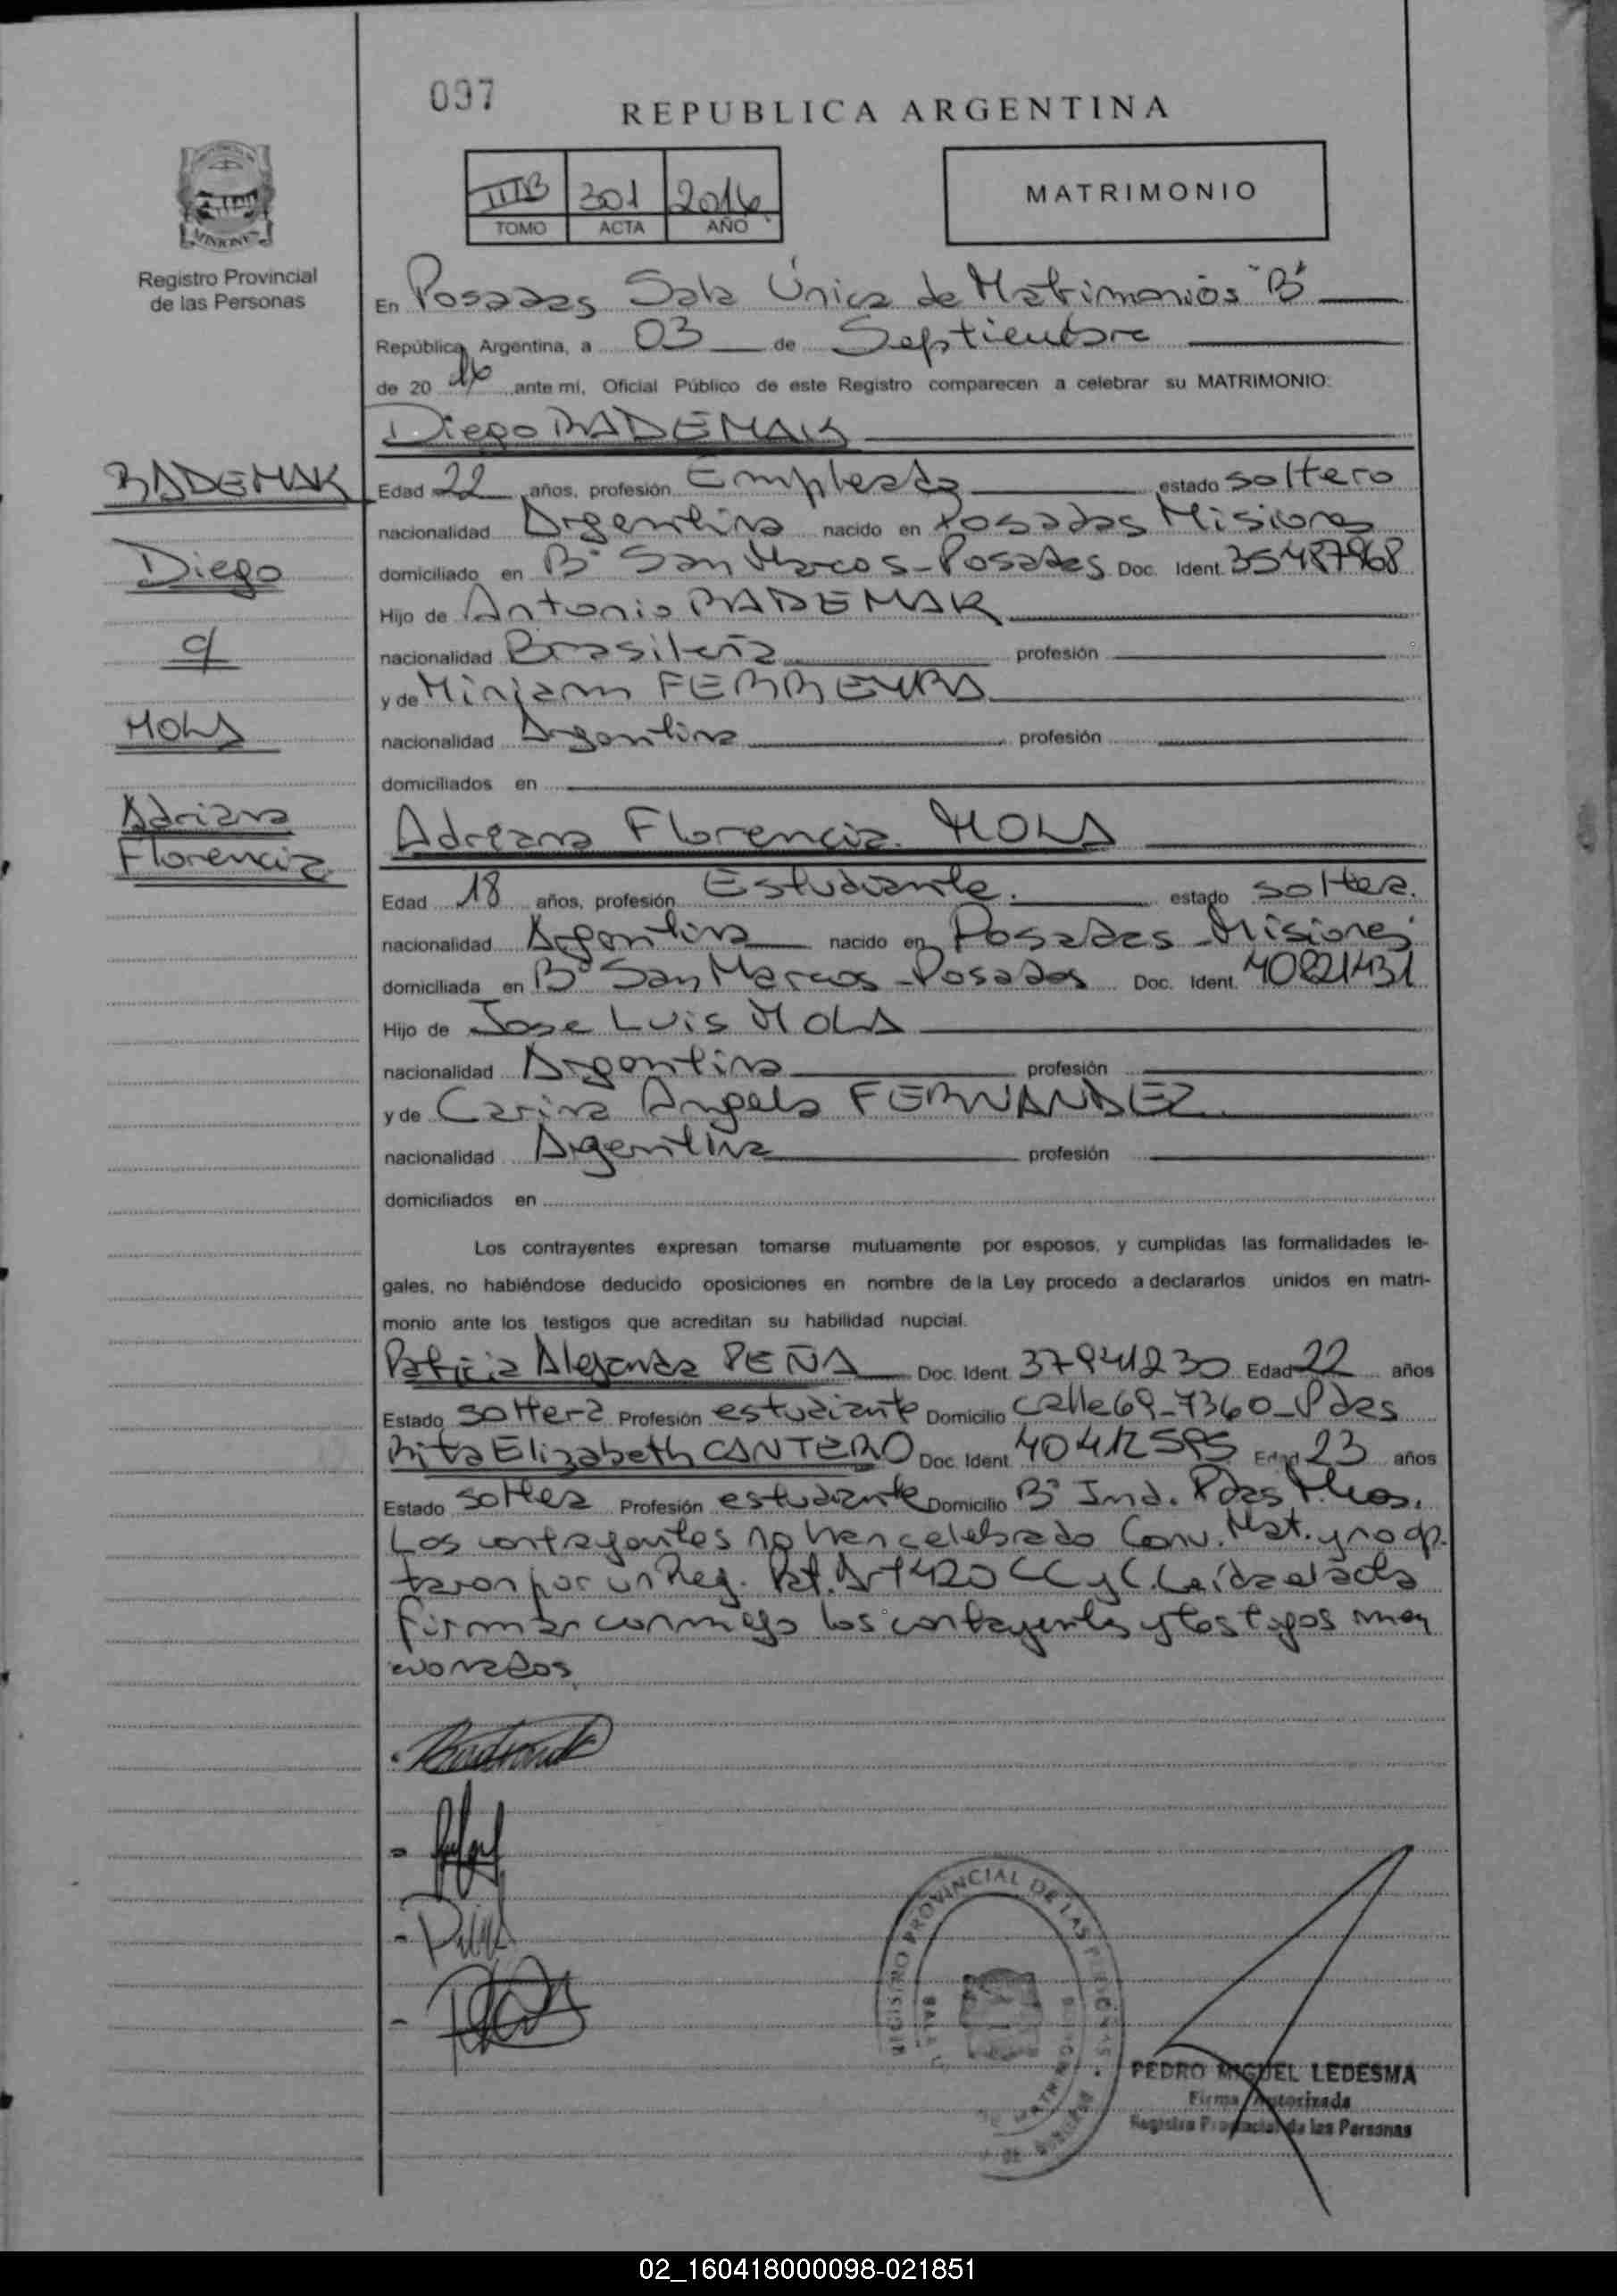 097
REPUBLICA ARGENTINA
IIIB 301 2016
TOMO ACTA AÑO
MATRIMONIO
MISIONES
Registro Provincial
de las Personas
En Posadas Sala Única de Matrimonios "B"
República Argentina, a 03 de Septiembre
de 20 16 ante mí, Oficial Público de este Registro comparecen a celebrar su MATRIMONIO:
Diego RADEMAK
RADEMAK
Edad 22 años, profesión Empleado estado soltero
nacionalidad Argentina nacido en Posadas Misiones
Diego
domiciliado en B° San Marcos - Posadas Doc. Ident. 35487968
Hijo de Antonio RADEMAK
c/
nacionalidad Brasileña profesión
y de Miriam FERREYRA
MOLA
nacionalidad Argentina profesión
domiciliados en
Adriana
Florencia
Adriana Florencia MOLA
Edad 18 años, profesión Estudiante estado soltera.
nacionalidad Argentina nacido en Posadas - Misiones
domiciliada en B° San Marcos - Posadas Doc. Ident. 40821431
Hijo de Jose Luis MOLA
nacionalidad Argentina profesión
y de Carina Angela FERNANDEZ
nacionalidad Argentina profesión
domiciliados en
Los contrayentes expresan tomarse mutuamente por esposos, y cumplidas las formalidades le-
gales, no habiéndose deducido oposiciones en nombre de la Ley procedo a declararlos unidos en matri-
monio ante los testigos que acreditan su habilidad nupcial.
Patricia Alejandra PEÑA Doc. Ident. 37941230 Edad 22 años
Estado soltera Profesión estudiante Domicilio calle 69-7360-Pdas
Rita Elizabeth CANTERO Doc. Ident. 40412595 Edad 23 años
Estado soltera Profesión estudiante Domicilio B° Ind. Pdas Mnes.
Los contrayentes no han celebrado Conv. Mat. y no op.
taron por un Reg. Pat. Art 420 CC y C. Leida el acta
firman conmigo los contrayentes y testigos men
cionados
REGISTRO PROVINCIAL DE LAS PERSONAS
PEDRO MIGUEL LEDESMA
Firma Autorizada
Registro Provincial de las Personas
02_160418000098-021851